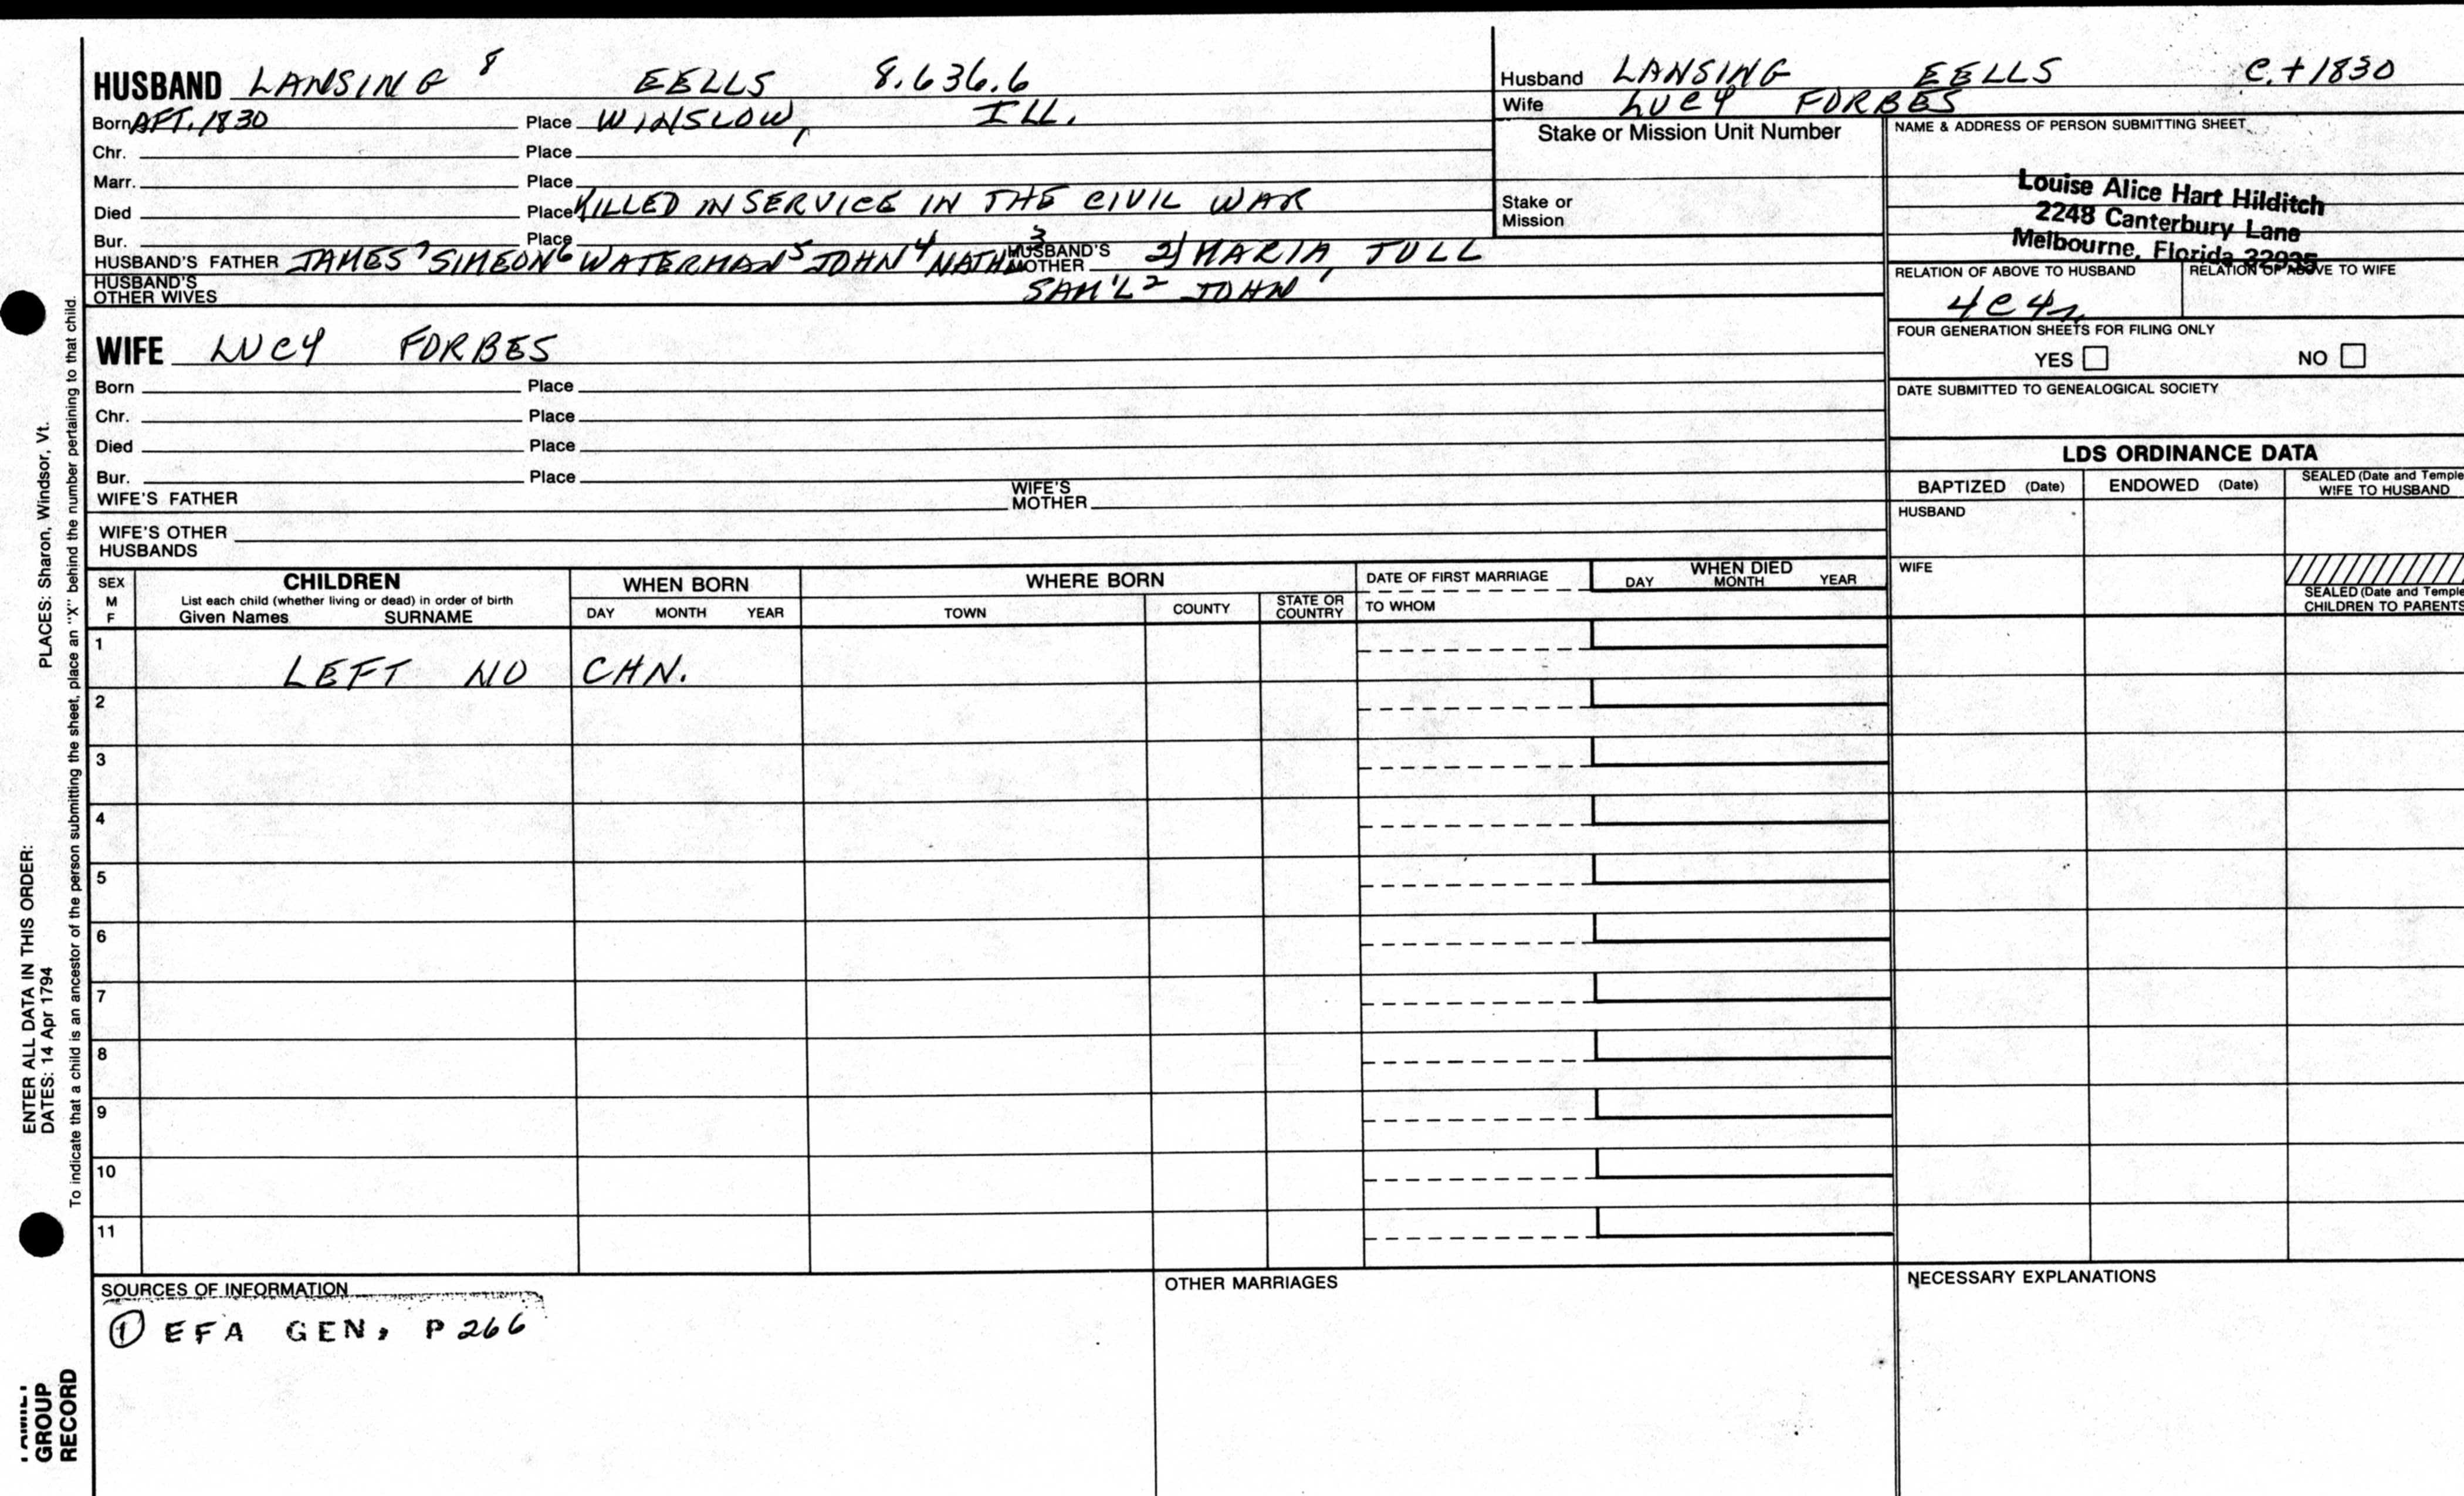 HUSBAND LANSING 8 EELLS 8.636.6
Born AFT. 1830 Place WINSLOW, ILL.
Chr. Place
Marr. Place
Died Place KILLED IN SERVICE IN THE CIVIL WAR
Bur. Place
HUSBAND'S FATHER JAMES 7 SIMEON 6 WATERMAN 5 JOHN 4 NATH 3 HUSBAND'S MOTHER 2) MARIA TULL
HUSBAND'S OTHER WIVES SAM'L 2 JOHN 1
WIFE LUCY FORBES
Born Place
Chr. Place
Died Place
Bur. Place
WIFE'S FATHER WIFE'S MOTHER
WIFE'S OTHER HUSBANDS
Husband LANSING EELLS C.+1830
Wife LUCY FORBES
Stake or Mission Unit Number
Stake or Mission
NAME & ADDRESS OF PERSON SUBMITTING SHEET
Louise Alice Hart Hilditch
2248 Canterbury Lane
Melbourne, Florida 32935
RELATION OF ABOVE TO HUSBAND RELATION OF ABOVE TO WIFE
4C4r
FOUR GENERATION SHEETS FOR FILING ONLY
YES NO
DATE SUBMITTED TO GENEALOGICAL SOCIETY
LDS ORDINANCE DATA
BAPTIZED (Date) ENDOWED (Date) SEALED (Date and Temple
WIFE TO HUSBAND
HUSBAND
WIFE
SEALED (Date and Temple
CHILDREN TO PARENTS
SEX M F
CHILDREN
List each child (whether living or dead) in order of birth
Given Names SURNAME
WHEN BORN
DAY MONTH YEAR
WHERE BORN
TOWN COUNTY STATE OR COUNTRY
DATE OF FIRST MARRIAGE
TO WHOM
WHEN DIED
DAY MONTH YEAR
1
LEFT NO CHN.
2
3
4
5
6
7
8
9
10
11
SOURCES OF INFORMATION
1 EFA GEN, P 266
OTHER MARRIAGES
NECESSARY EXPLANATIONS
PLACES: Sharon, Windsor, Vt.
ENTER ALL DATA IN THIS ORDER:
DATES: 14 Apr 1794
To indicate that a child is an ancestor of the person submitting the sheet, place an "X" behind the number pertaining to that child.
FAMILY
GROUP
RECORD